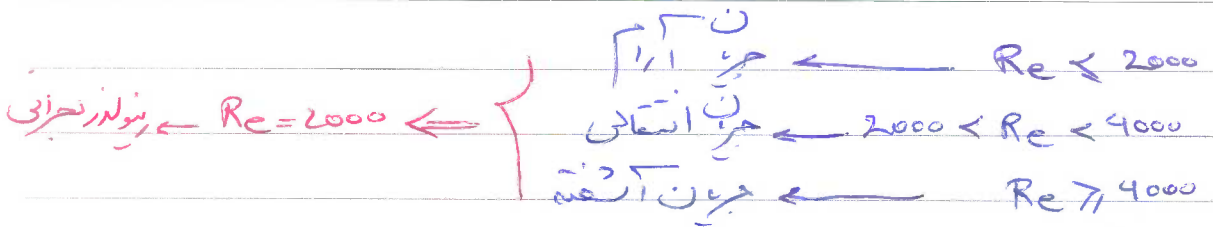 Re ≤ 2000 ← جریان آرام
2000 < Re < 4000 ← جریان انتقالی
Re ≥ 4000 ← جریان آشفته
⇐ Re = 2000 ← رینولدز بحرانی